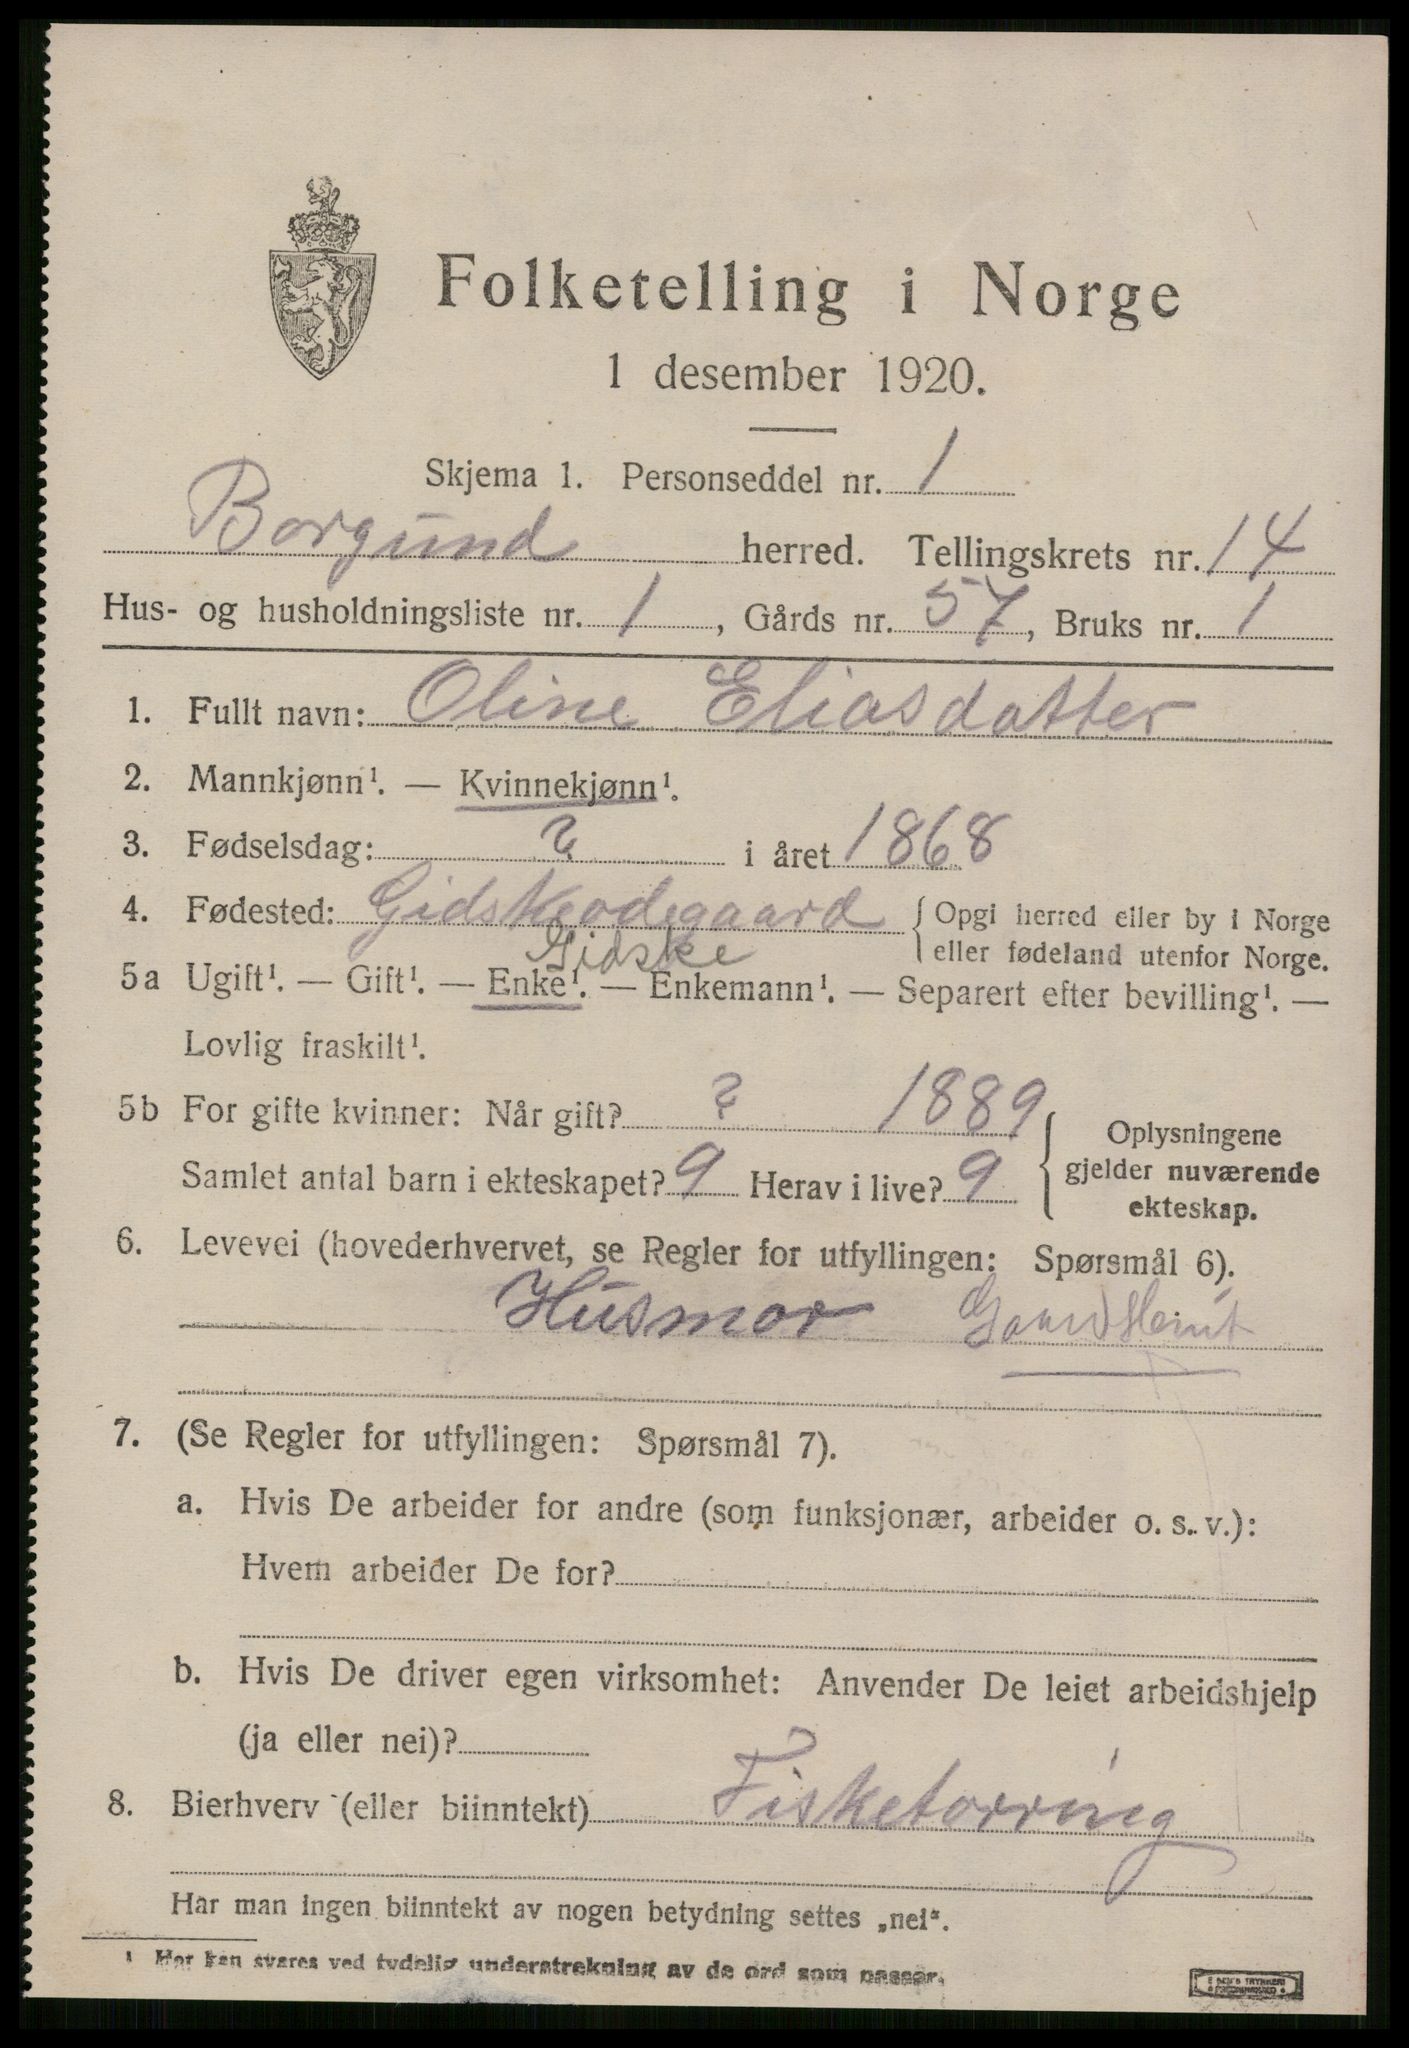 Folketelling i Norge
1 desember 1920.
Skjema 1. Personseddel nr. 1
Borgund herred. Tellingskrets nr. 14
Hus- og husholdningsliste nr. 1, Gårds nr. 57, Bruks nr. 1
1. Fullt navn: Oline Eliasdatter
2. Mannkjønn¹. — Kvinnekjønn¹.
3. Fødselsdag: ? i året 1868
4. Fødested: Gidskeodegaard { Opgi herred eller by i Norge
eller fødeland utenfor Norge.
Gidske
5a Ugift¹. — Gift¹. — Enke¹. — Enkemann¹. — Separert efter bevilling¹. —
Lovlig fraskilt¹.
5b For gifte kvinner: Når gift? ? 1889
Samlet antal barn i ekteskapet? 9 Herav i live? 9
{ Oplysningene
gjelder nuværende
ekteskap.
6. Levevei (hovederhvervet, se Regler for utfyllingen: Spørsmål 6).
Husmor
7. (Se Regler for utfyllingen: Spørsmål 7).
a. Hvis De arbeider for andre (som funksjonær, arbeider o. s. v.):
Hvem arbeider De for?
b. Hvis De driver egen virksomhet: Anvender De leiet arbeidshjelp
(ja eller nei)?
8. Bierhverv (eller biinntekt) Fisketørring
Har man ingen biinntekt av nogen betydning settes „nei".
¹ Her kan svares ved tydelig understrekning av de ord som passer.